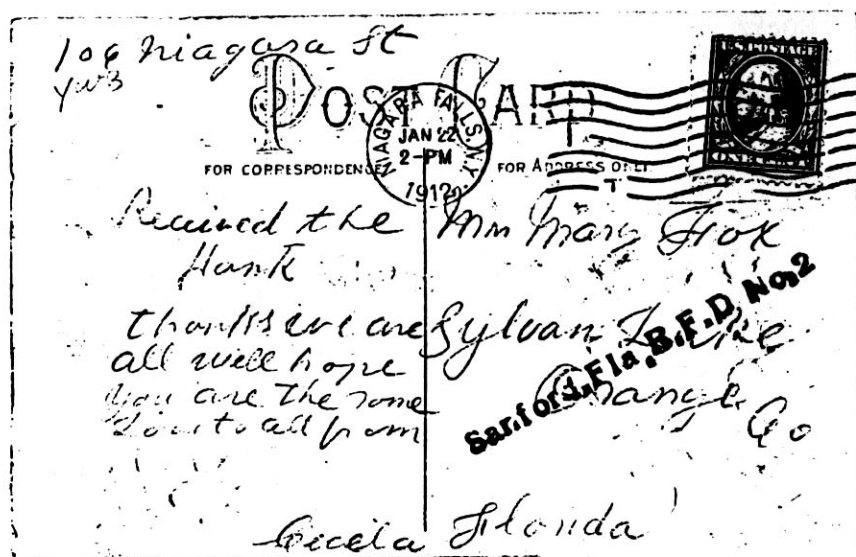 106 Niagara St
POST CARD
NIAGARA FALLS, N.Y.
JAN 22
2-PM
1912
U.S. POSTAGE
ONE CENT
FOR CORRESPONDENCE
FOR ADDRESS ONLY
Received the
Hank
thanks we are
all well hope
you are the same
Love to all from
Cicela
Mrs Mary Fox
Sylvan Lake
Orange Co
Florida
Sanford, Fla, R.F.D. No. 2